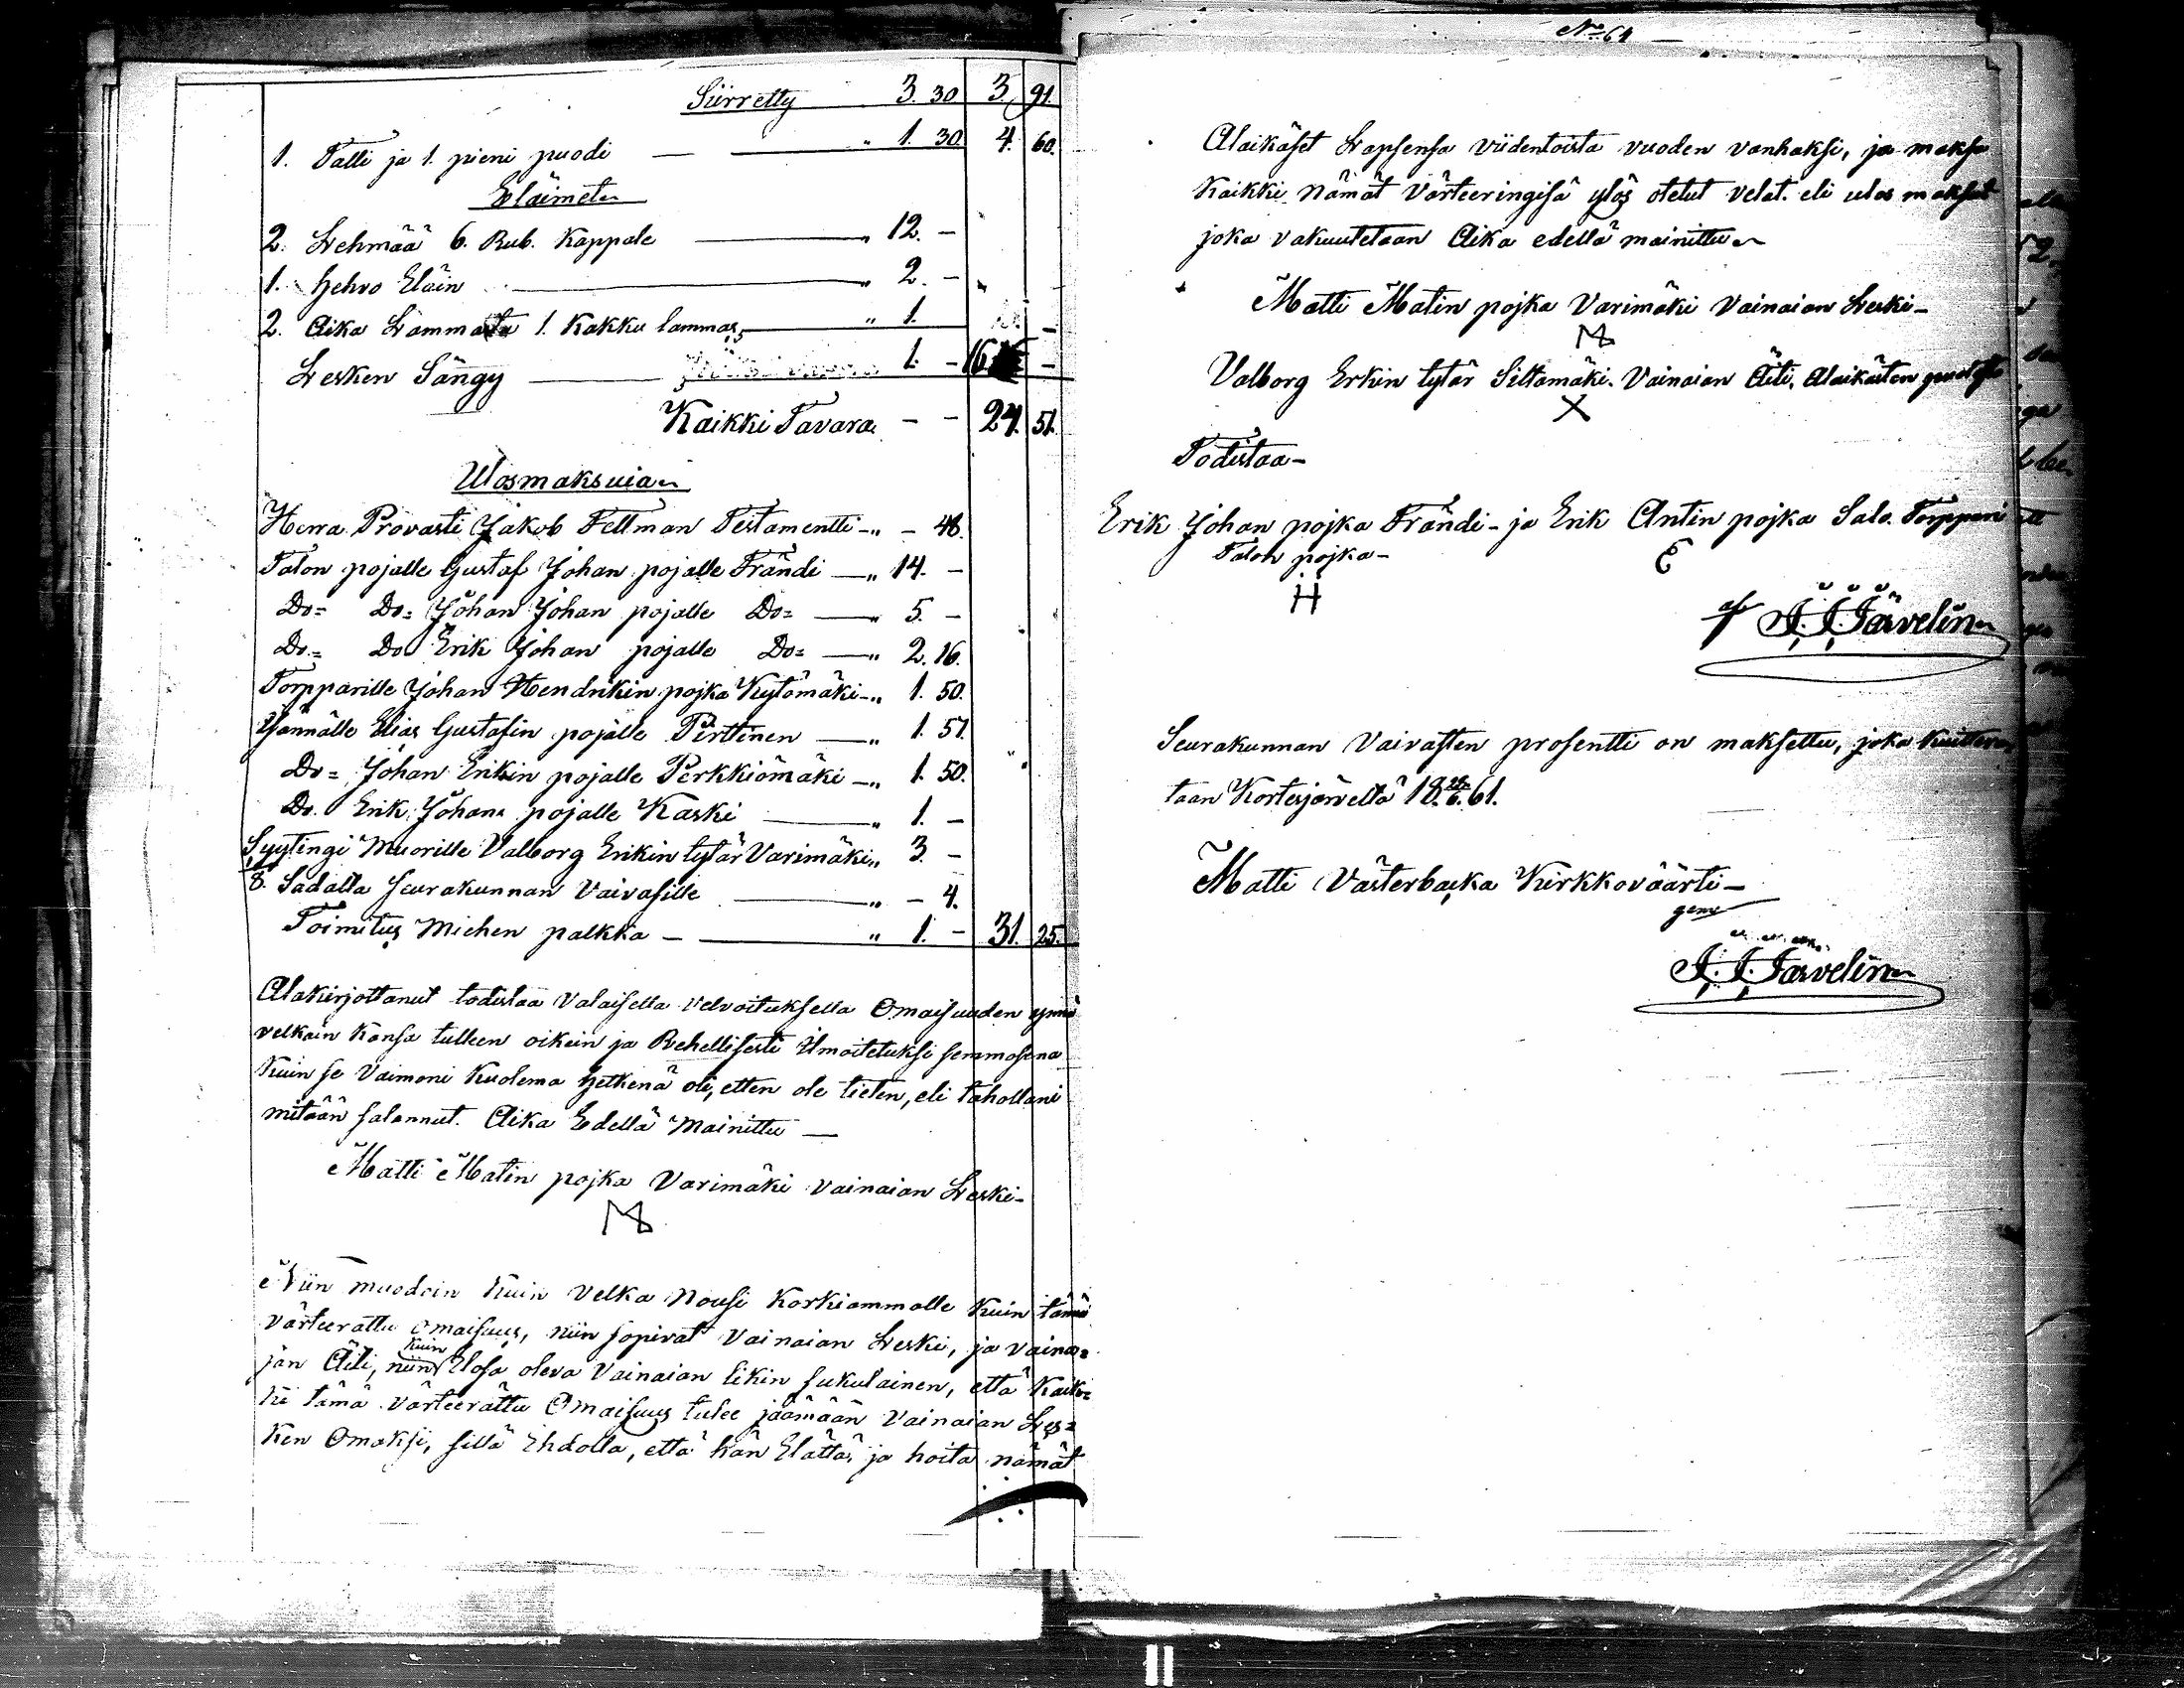 Siirretty 3. 30 3. 91.
1. Talli ja 1. pieni puodi — " 1. 30 4. 60.
Eläimet
2. Lehmää 6. Rub. Kappale — " 12. –
1. Hehvo Eläin — " 2. –
2. Aika Lammasta 1. Kakku lammas — " 1.
Lesken Sängy — 1. – 16 –
Kaikki Tavara – – 24. 51.
Ulosmaksuia
Herra Provasti Jakob Fellman Testamentti – " – 48.
Talon pojalle Gustaf Johan pojalle Frändi — " 14. –
Do= Do= Johan Johan pojalle Do= — " 5. –
Do= Do Erik Johan pojalle Do= — " 2. 16.
Torpparille Johan Hendrikin pojka Kytömäki – " 1. 50.
Isännälle Elias Gustafin pojalle Pirttinen — " 1. 57.
Do= Johan Erikin pojalle Perkkiömäki – " 1. 50.
Do. Erik Johan pojalle Kaski — " 1. –
Syytingi Muorille Valborg Erikin tytär Varimäki " 3. –
8. Sadalta seurakunnan Vaivasille — " – 4.
Toimitus Miehen palkka – — " 1. – 31. 25.
Alakirjottanut todistaa valaisella velvoituksella Omaisuuden ynnä
velkain kansa tulleen oikein ja Rehellisesti Ilmoitetuksi semmosena
Kuin se Vaimoni Kuolema hetkenä oli, etten ole tieten, eli tahollani
mitään salannut. Aika Edellä Mainittu —
Matti Matin pojka Varimäki vainaian Leski –
Niin muodoin Kuin Velka nousi Korkiammalle Kuin tämä
värteerattu omaisuus, niin sopivat Vainaian Leski, ja vaina=
jan Äiti, niin Kuin Elosa oleva Vainaian likin sukulainen, että Kaik=
ki tämä värteerättu Omaisuus tulee jäämään Vainaian Les=
ken Omaksi, sillä Ehdolla, että hän Elättä, ja hoita nämät
No 64
Alaikäset Lapsensa viidentoista vuoden vanhaksi, ja maksa
Kaikki nämät värteeringisä ylös otetut velat. eli ulos maksut
joka vakuutetaan Aika edellä mainittu
Matti Matin pojka Varimäki Vainaian Leski –
Valborg Erkin tytär Siltamäki. Vainaian Äiti, Alaikäiten
X
Todistaa –
Erik Johan pojka Frändi – ja Erik Antin pojka Salo. Torppari
Talon pojka –
H E
af J. J. Järvelin
Seurakunnan Vaivasten prosentti on maksettu, joka kuitten
taan Kortesjärveltä 18 28/6. 61.
Matti Västerbacka Kirkkoväärti –
gem
J. J. Järvelin